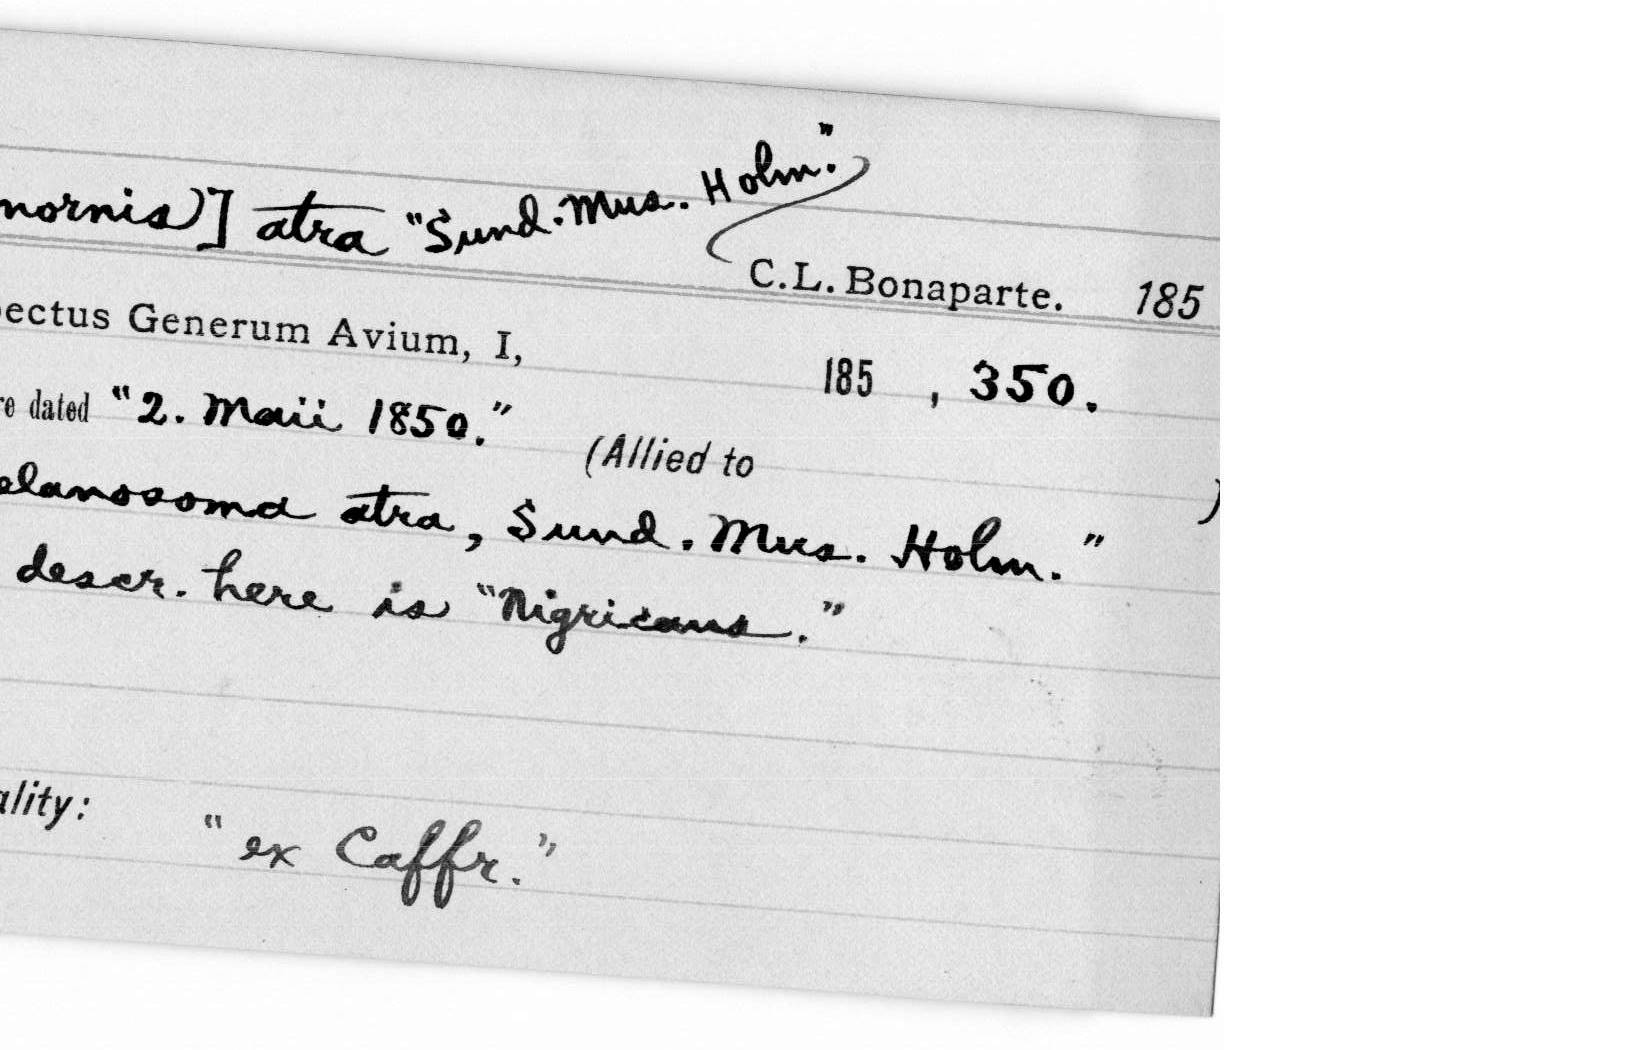 nornis)] atra "Sund. Mus. Holm."
C.L. Bonaparte. 185
ectus Generum Avium, I, 185 , 350.
re dated "2. Maii 1850." (Allied to )
elanosoma atra, Sund. Mus. Holm."
descr. here is "Nigricans."
ality: "ex Caffr."